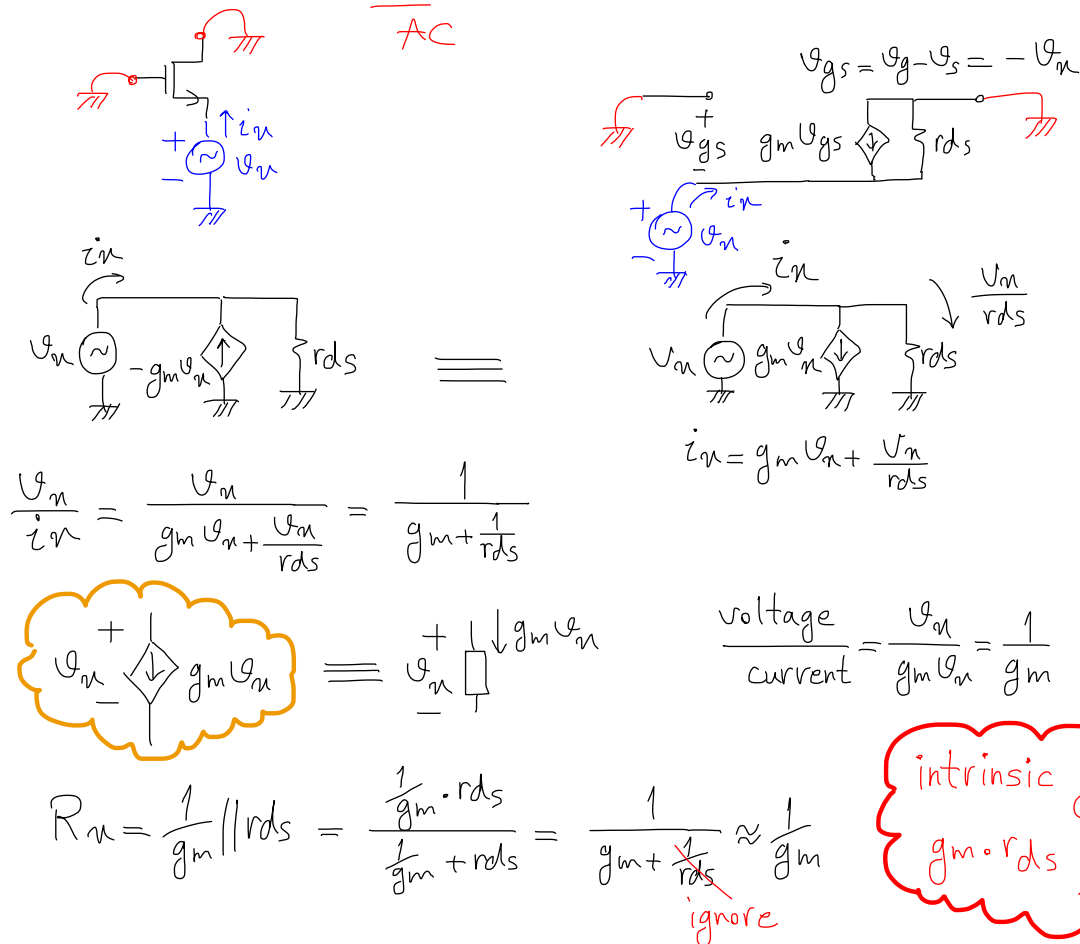 AC
vgs = vg - vs = - vx
+ ix
- vx
+
vgs
-
gm vgs
rds
+ ix
- vx
ix
vx
-gm vx
rds
≡
ix
vx
gm vx
rds
vx/rds
ix = gm vx + vx/rds
vx/ix = vx/(gm vx + vx/rds) = 1/(gm + 1/rds)
+
vx
-
gm vx
≡
+
vx
-
gm vx
voltage/current = vx/(gm vx) = 1/gm
Rx = 1/gm || rds = (1/gm · rds)/(1/gm + rds) = 1/(gm + 1/rds) ≈ 1/gm
ignore
intrinsic
gm · rds